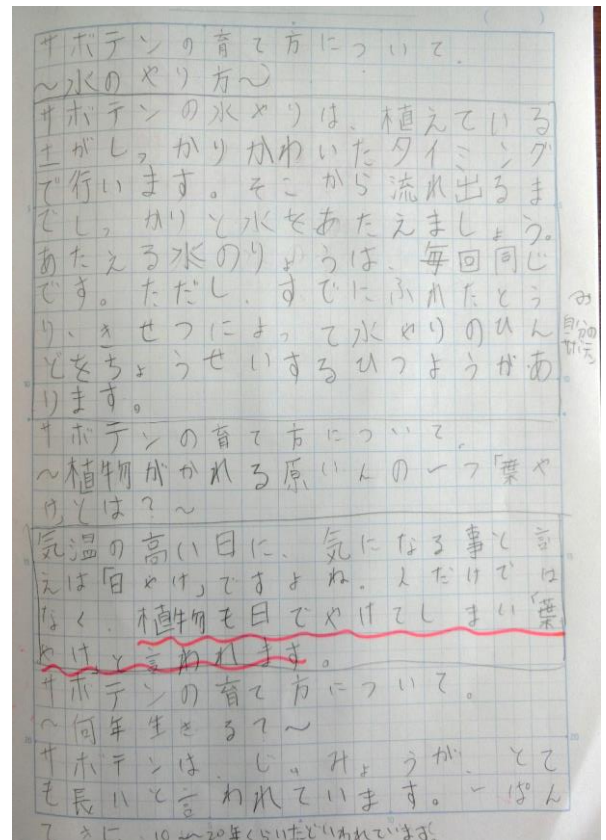 サボテンの育て方について.
～水のやり方～
サボテンの水やりは、植えている
土がしっかりかわいたタイミング
で行います。そこから流れ出るま
でしっかりと水をあたえましょう。
あたえる水のりょうは、毎回同じ
です。ただし、すでにふれたとう
り、きせつによって水やりのひん
どをちょうせいするひつようがあ
ります。
サボテンの育て方について.
～植物がかれる原いんの一つ「葉や
け」とは？～
気温の高い日に、気になる事と言
えは「日やけ」ですよね.人だけでは
なく、植物も日でやけてしまい「葉
やけ」と言われます。
サボテンの育て方について。
～何年生きる？～
サボテンは、じゅみょうが、とて
も長いと言われています。一ぱん
てきに、10～20年くらいだといわれています